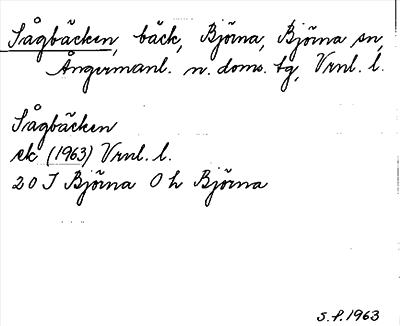 Sågbäcken, bäck, Björna, Björna sn,
Ångermanl. n. doms. tg, Vrnl. l.
Sågbäcken
ek (1963) Vrnl. l.
20 I Björna O h Björna
S.P. 1963